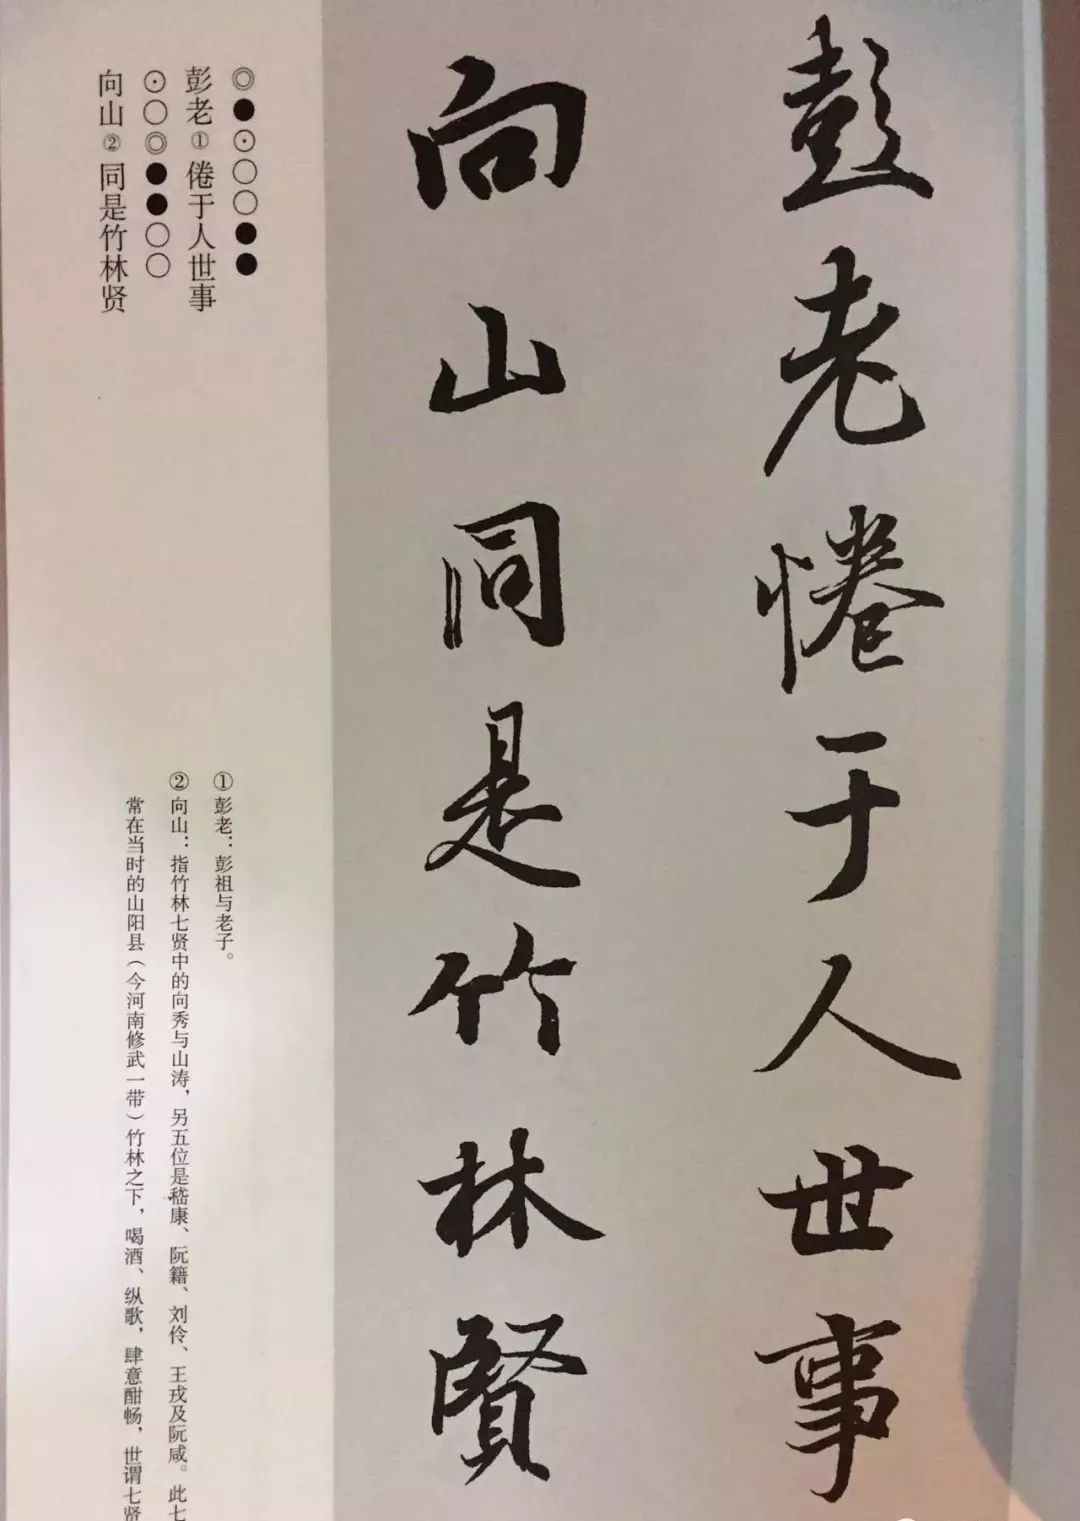 彭老惓于人世事
向山同是竹林賢
◎●⊙○○●●
彭老①倦于人世事
⊙○◎●●○○
向山②同是竹林贤
①彭老：彭祖与老子。
②向山：指竹林七贤中的向秀与山涛，另五位是嵇康、阮籍、刘伶、王戎及阮咸。此七
常在当时的山阳县（今河南修武一带）竹林之下，喝酒、纵歌，肆意酣畅，世谓七贤